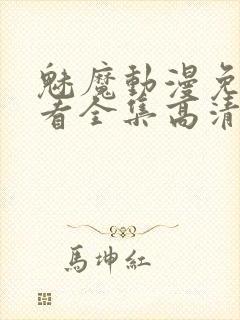 魅魔動漫免
看全集高清
馬坤紅